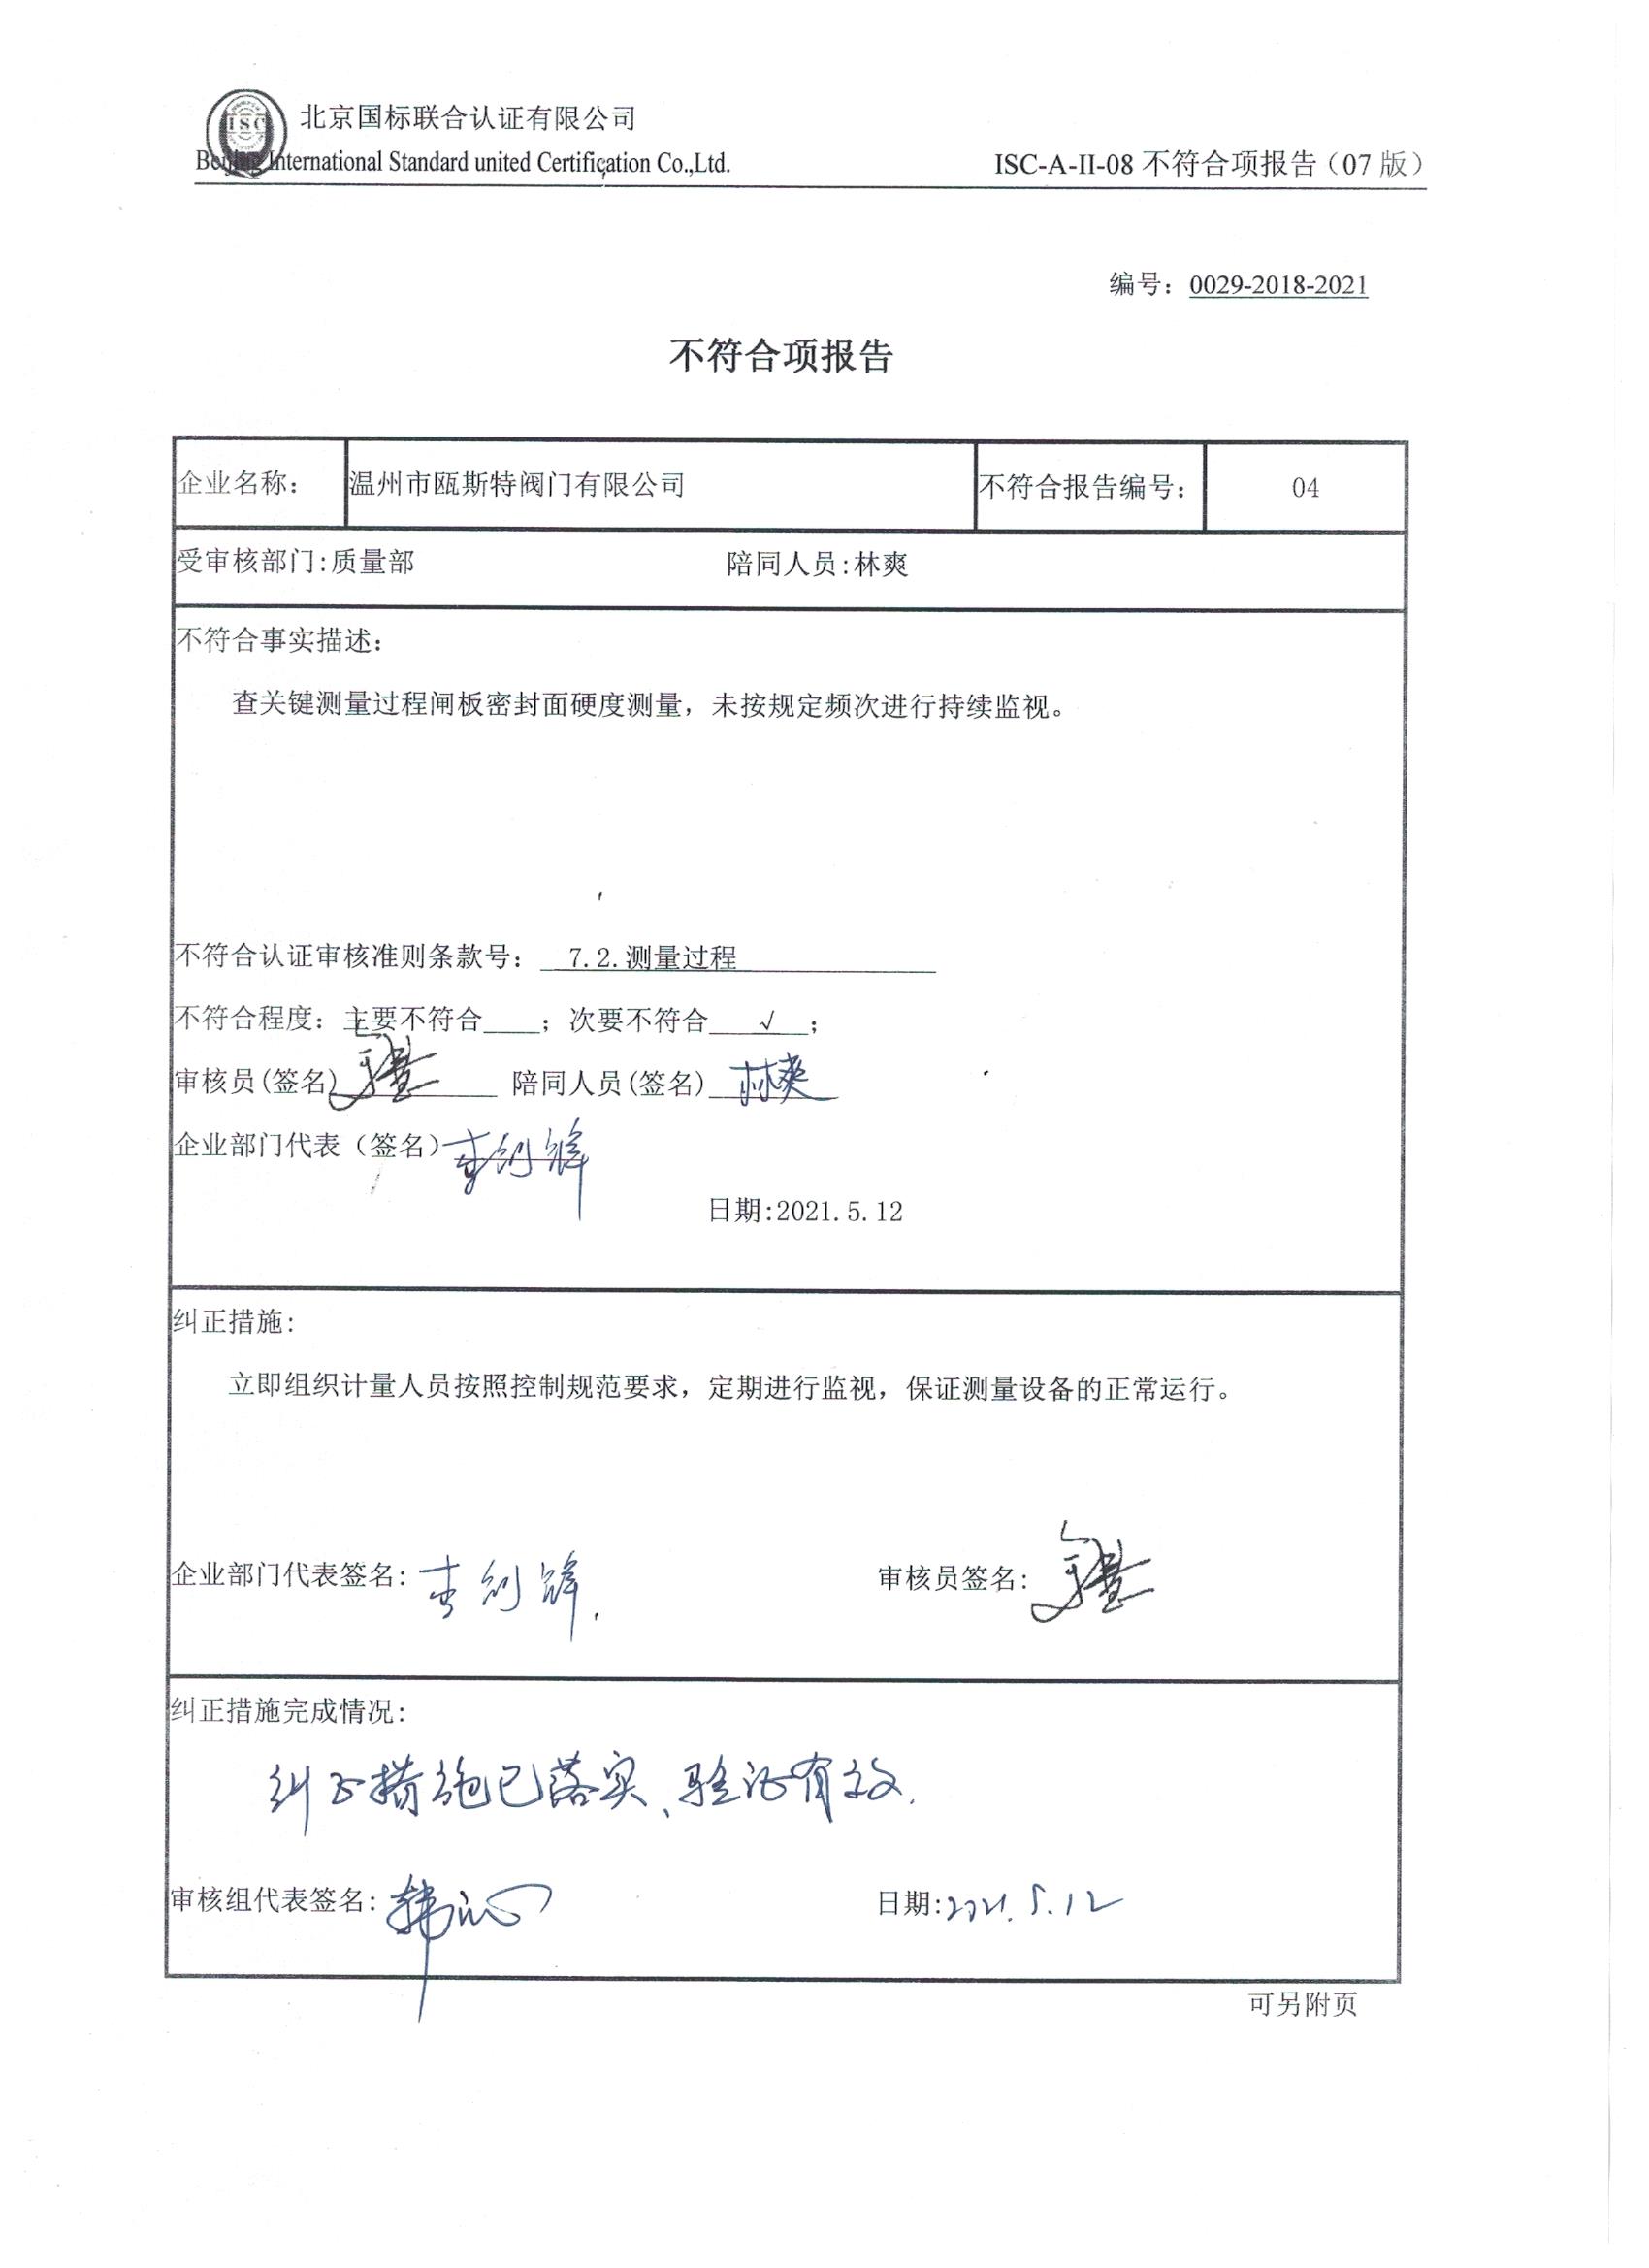 ISC
北京国标联合认证有限公司
Beijing International Standard united Certification Co.,Ltd.
ISC-A-II-08 不符合项报告（07 版）
编号：0029-2018-2021
不符合项报告
企业名称： 温州市瓯斯特阀门有限公司 不符合报告编号： 04
受审核部门:质量部 陪同人员:林爽
不符合事实描述：
查关键测量过程闸板密封面硬度测量，未按规定频次进行持续监视。
不符合认证审核准则条款号： 7.2.测量过程
不符合程度：主要不符合 ；次要不符合 √ ；
审核员(签名) 陪同人员(签名) 林爽
企业部门代表（签名）
日期:2021.5.12
纠正措施:
立即组织计量人员按照控制规范要求，定期进行监视，保证测量设备的正常运行。
企业部门代表签名: 审核员签名:
纠正措施完成情况:
纠正措施已落实、验证有效.
审核组代表签名: 日期:2021.5.12
可另附页